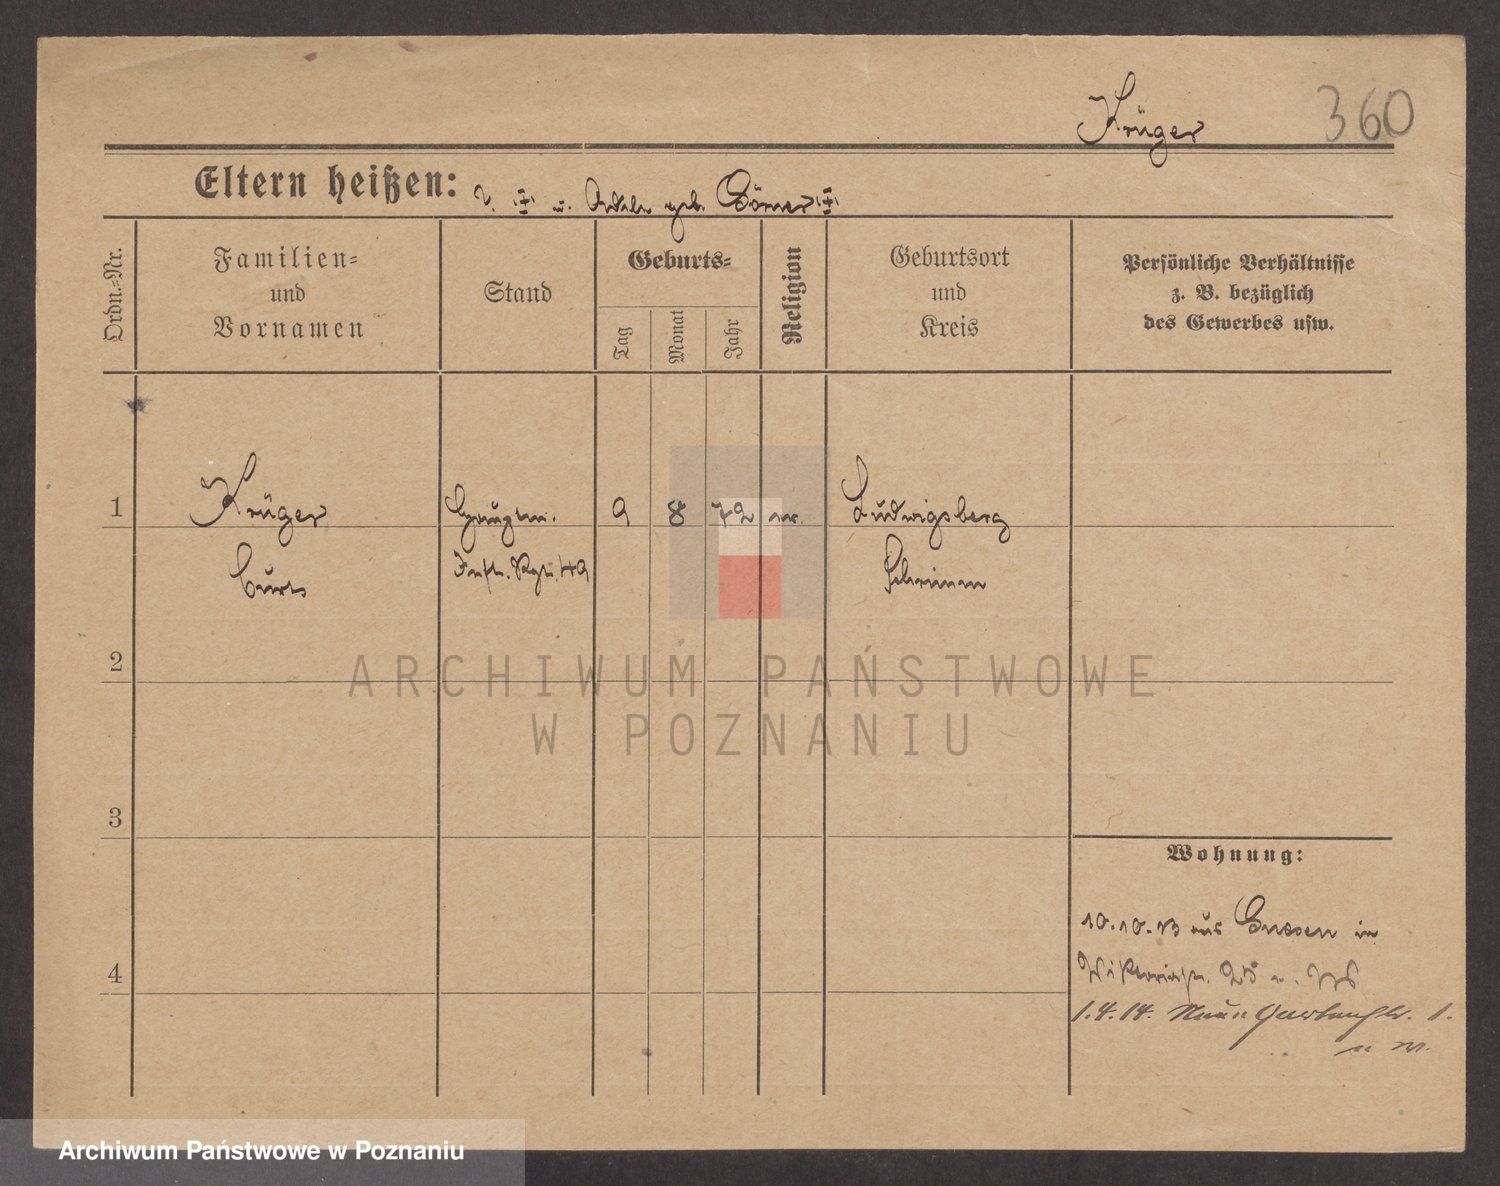 Krüger
360
Eltern heißen:
u. Adele geb. Börner
Ordn.-Nr.
Familien-
und
Vornamen
Stand
Geburts-
Tag
Monat
Jahr
Religion
Geburtsort
und
Kreis
Persönliche Verhältnisse
z. B. bezüglich
des Gewerbes usw.
1
Krüger
Hauptm.
9
8
72
ev.
Ludwigsberg
Curt
Inft. Rgt. 49
Schrimm
2
ARCHIWUM PAŃSTWOWE
W POZNANIU
3
Wohnung:
10.10.13 aus Gnesen in
Viktoriastr. 25
4
1.4.14. Neue Gartenstr. 1.
Archiwum Państwowe w Poznaniu